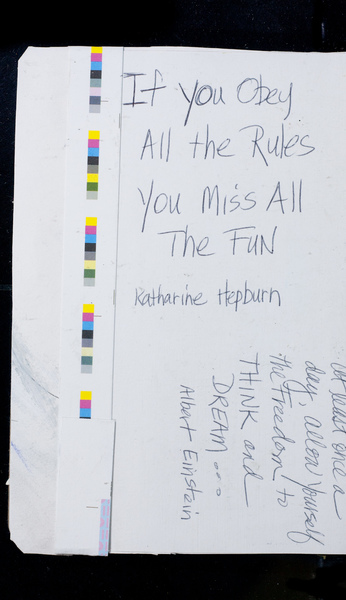 If you Obey
All the Rules
You Miss All
The FUN
Katharine Hepburn
At least once a
day, allow yourself
the Freedom to
THINK and
DREAM...
Albert Einstein